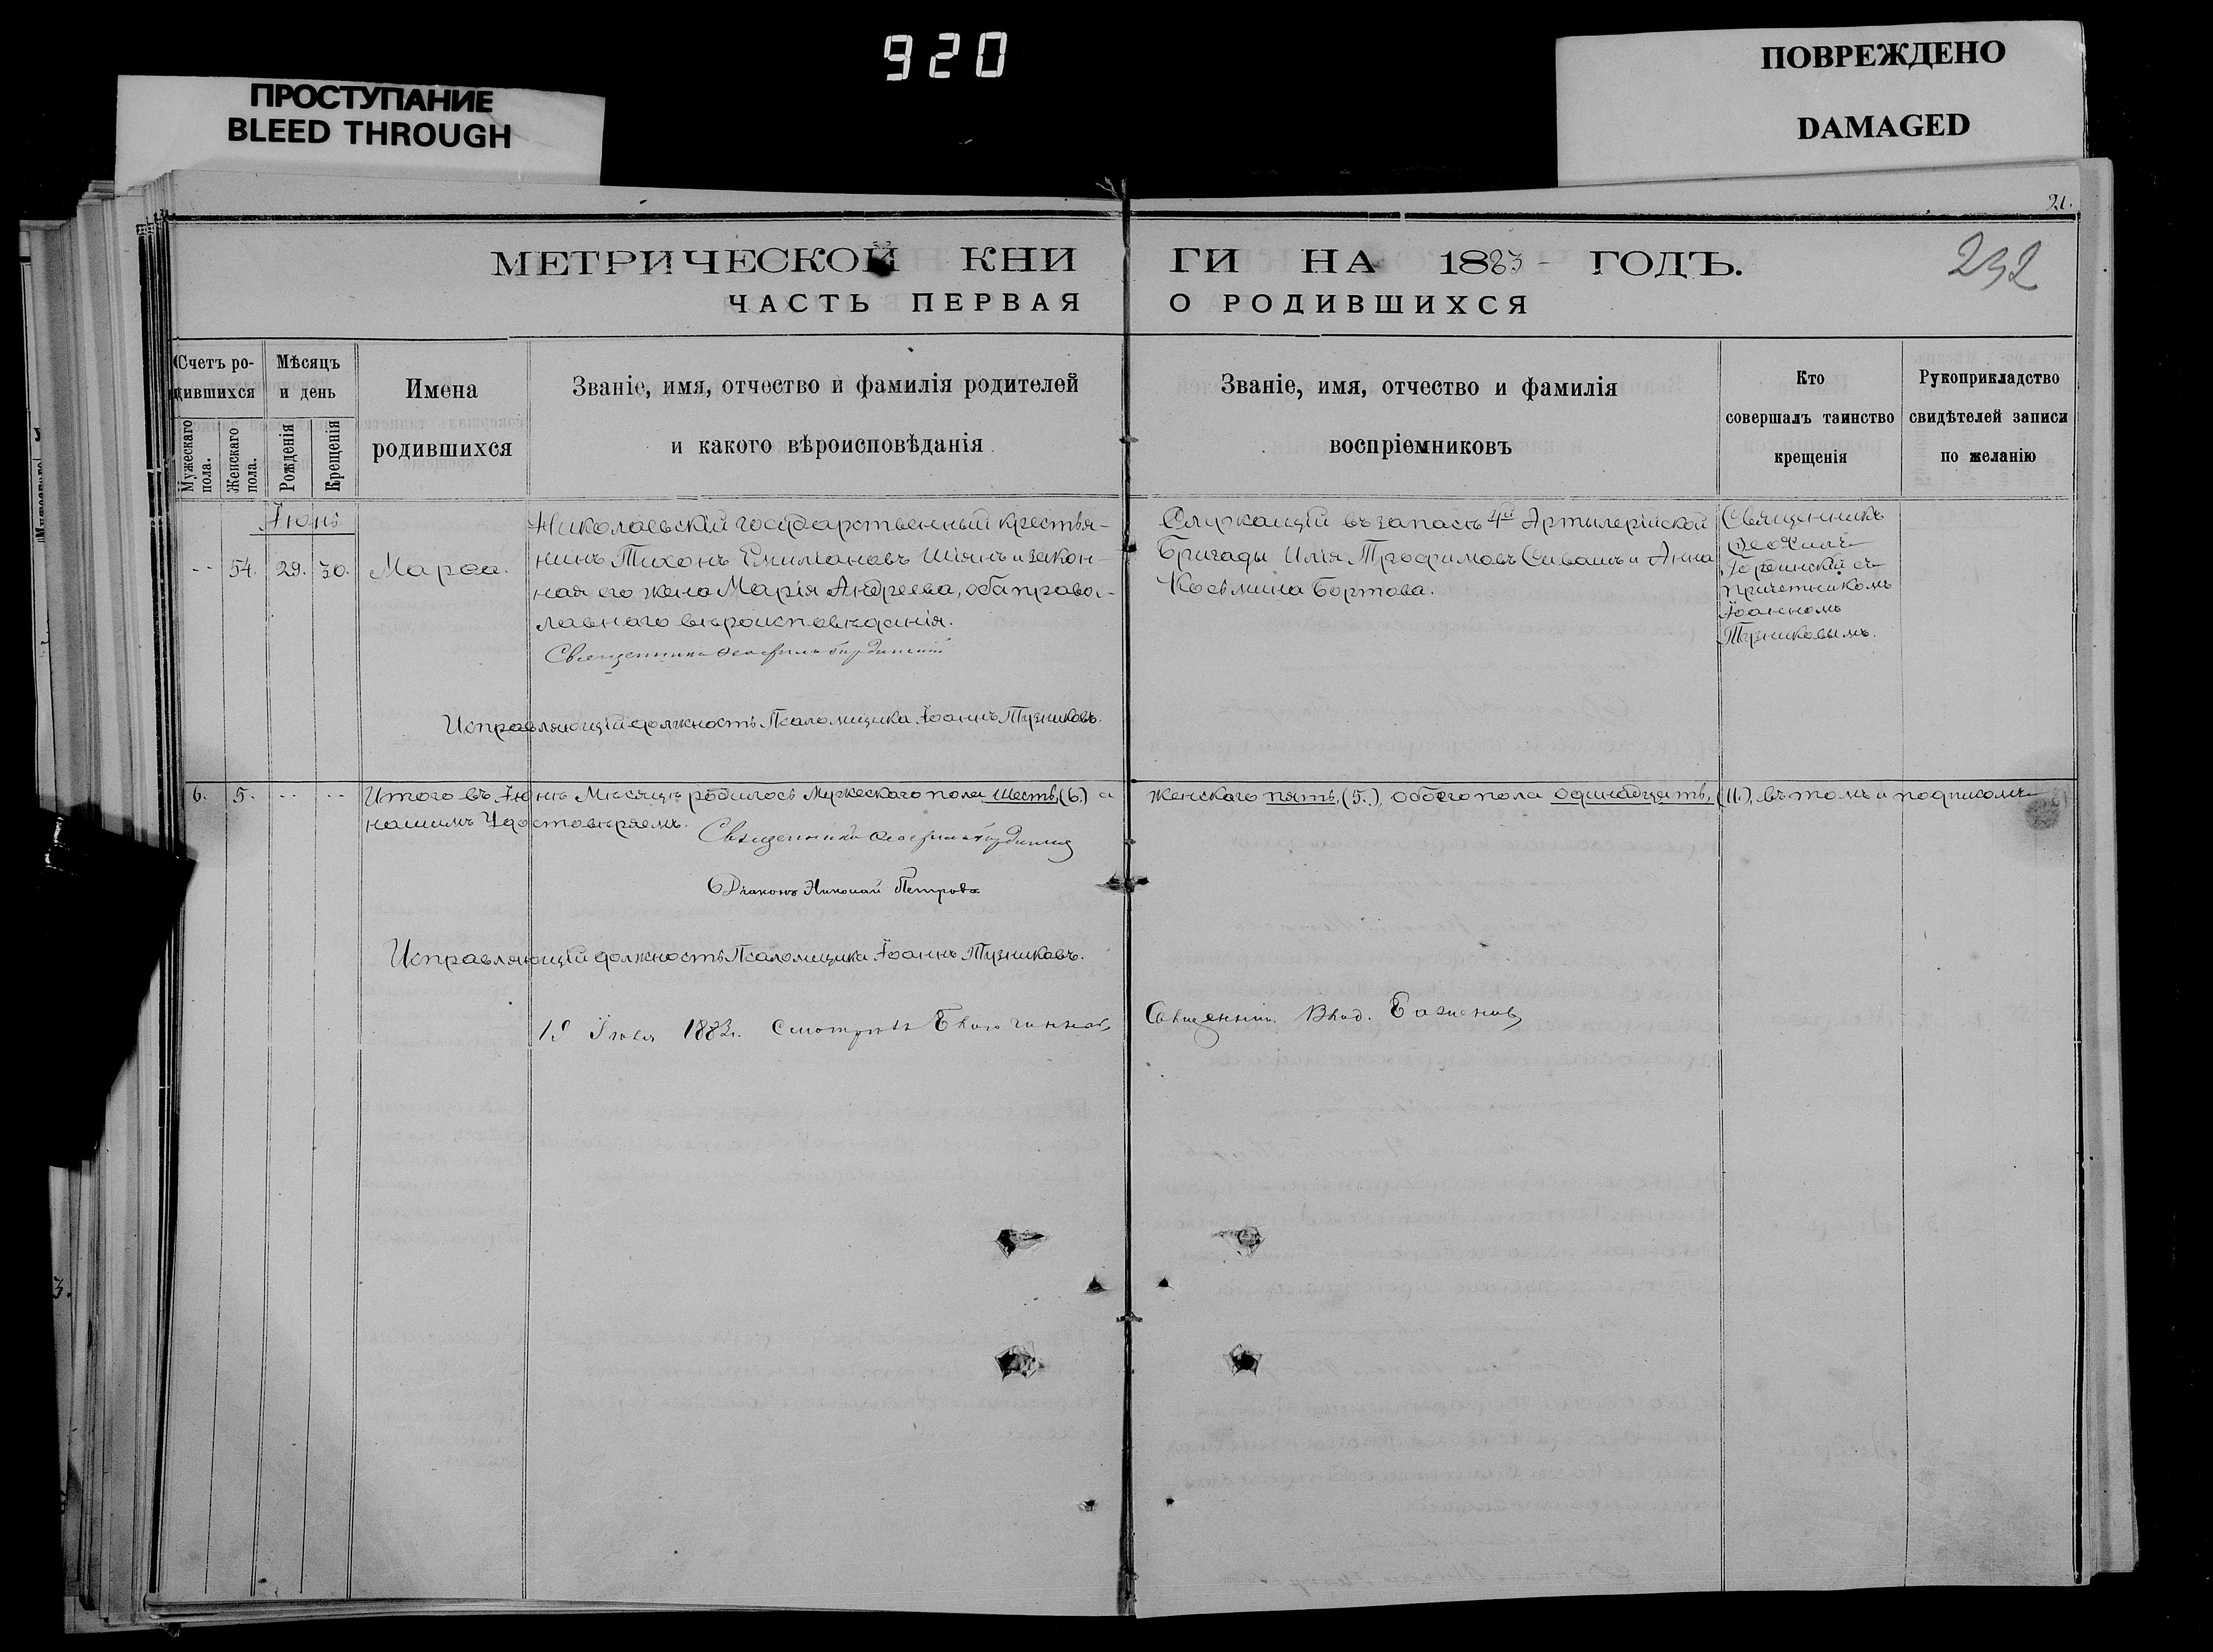 920
ПРОСТУПАНИЕ
BLEED THROUGH
ПОВРЕЖДЕНО
DAMAGED
21.
232
МЕТРИЧЕСКОЙ КНИ ГИ НА 1883 ГОДЪ.
ЧАСТЬ ПЕРВАЯ О РОДИВШИХСЯ
Счетъ ро-
дившихся
Мужескаго
пола.
Женскаго
пола.
Мѣсяцъ
и день
Рожденія
Крещенія
Имена
родившихся
Званіе, имя, отчество и фамилія родителей
и какого вѣроисповѣданія
Званіе, имя, отчество и фамилія
воспріемниковъ
Кто
совершалъ таинство
крещенія
Рукоприкладство
свидѣтелей записи
по желанію
Іюнь
-- 54. 29. 30. Марѳа.
Николаевскій государственный крестья-
нинъ Тихонъ Емиліановъ Шіянъ и закон-
ная его жена Марія Андреева, оба правос-
лавнаго вѣроисповѣданія.
Священникъ Ѳеофилъ
Служащій въ запасѣ 4й Артилерійской
Бригады Илія Трофимовъ Сивашъ и Анна
Косьмина Бортова.
Священникъ
Ѳеофилъ
съ
причетникомъ
Іоанномъ
Тузниковымъ.
Исправляющій должность Псаломщика Іоаннъ Тузниковъ.
6. 5. -- -- Итого въ Іюнѣ Мѣсяцѣ родилось Мужескаго пола шесть, (6.) а женскаго пять, (5.), обоего пола одинадцать, (11.), въ томъ и подписомъ
нашимъ Удостовѣряемъ.
Священникъ Ѳеофилъ
Діаконъ Николай Петровъ
Исправляющій должность Псаломщика Іоаннъ Тузниковъ.
Іюля 1883 г. Смотрѣлъ Благочинный Священникъ Влад. Баженовъ